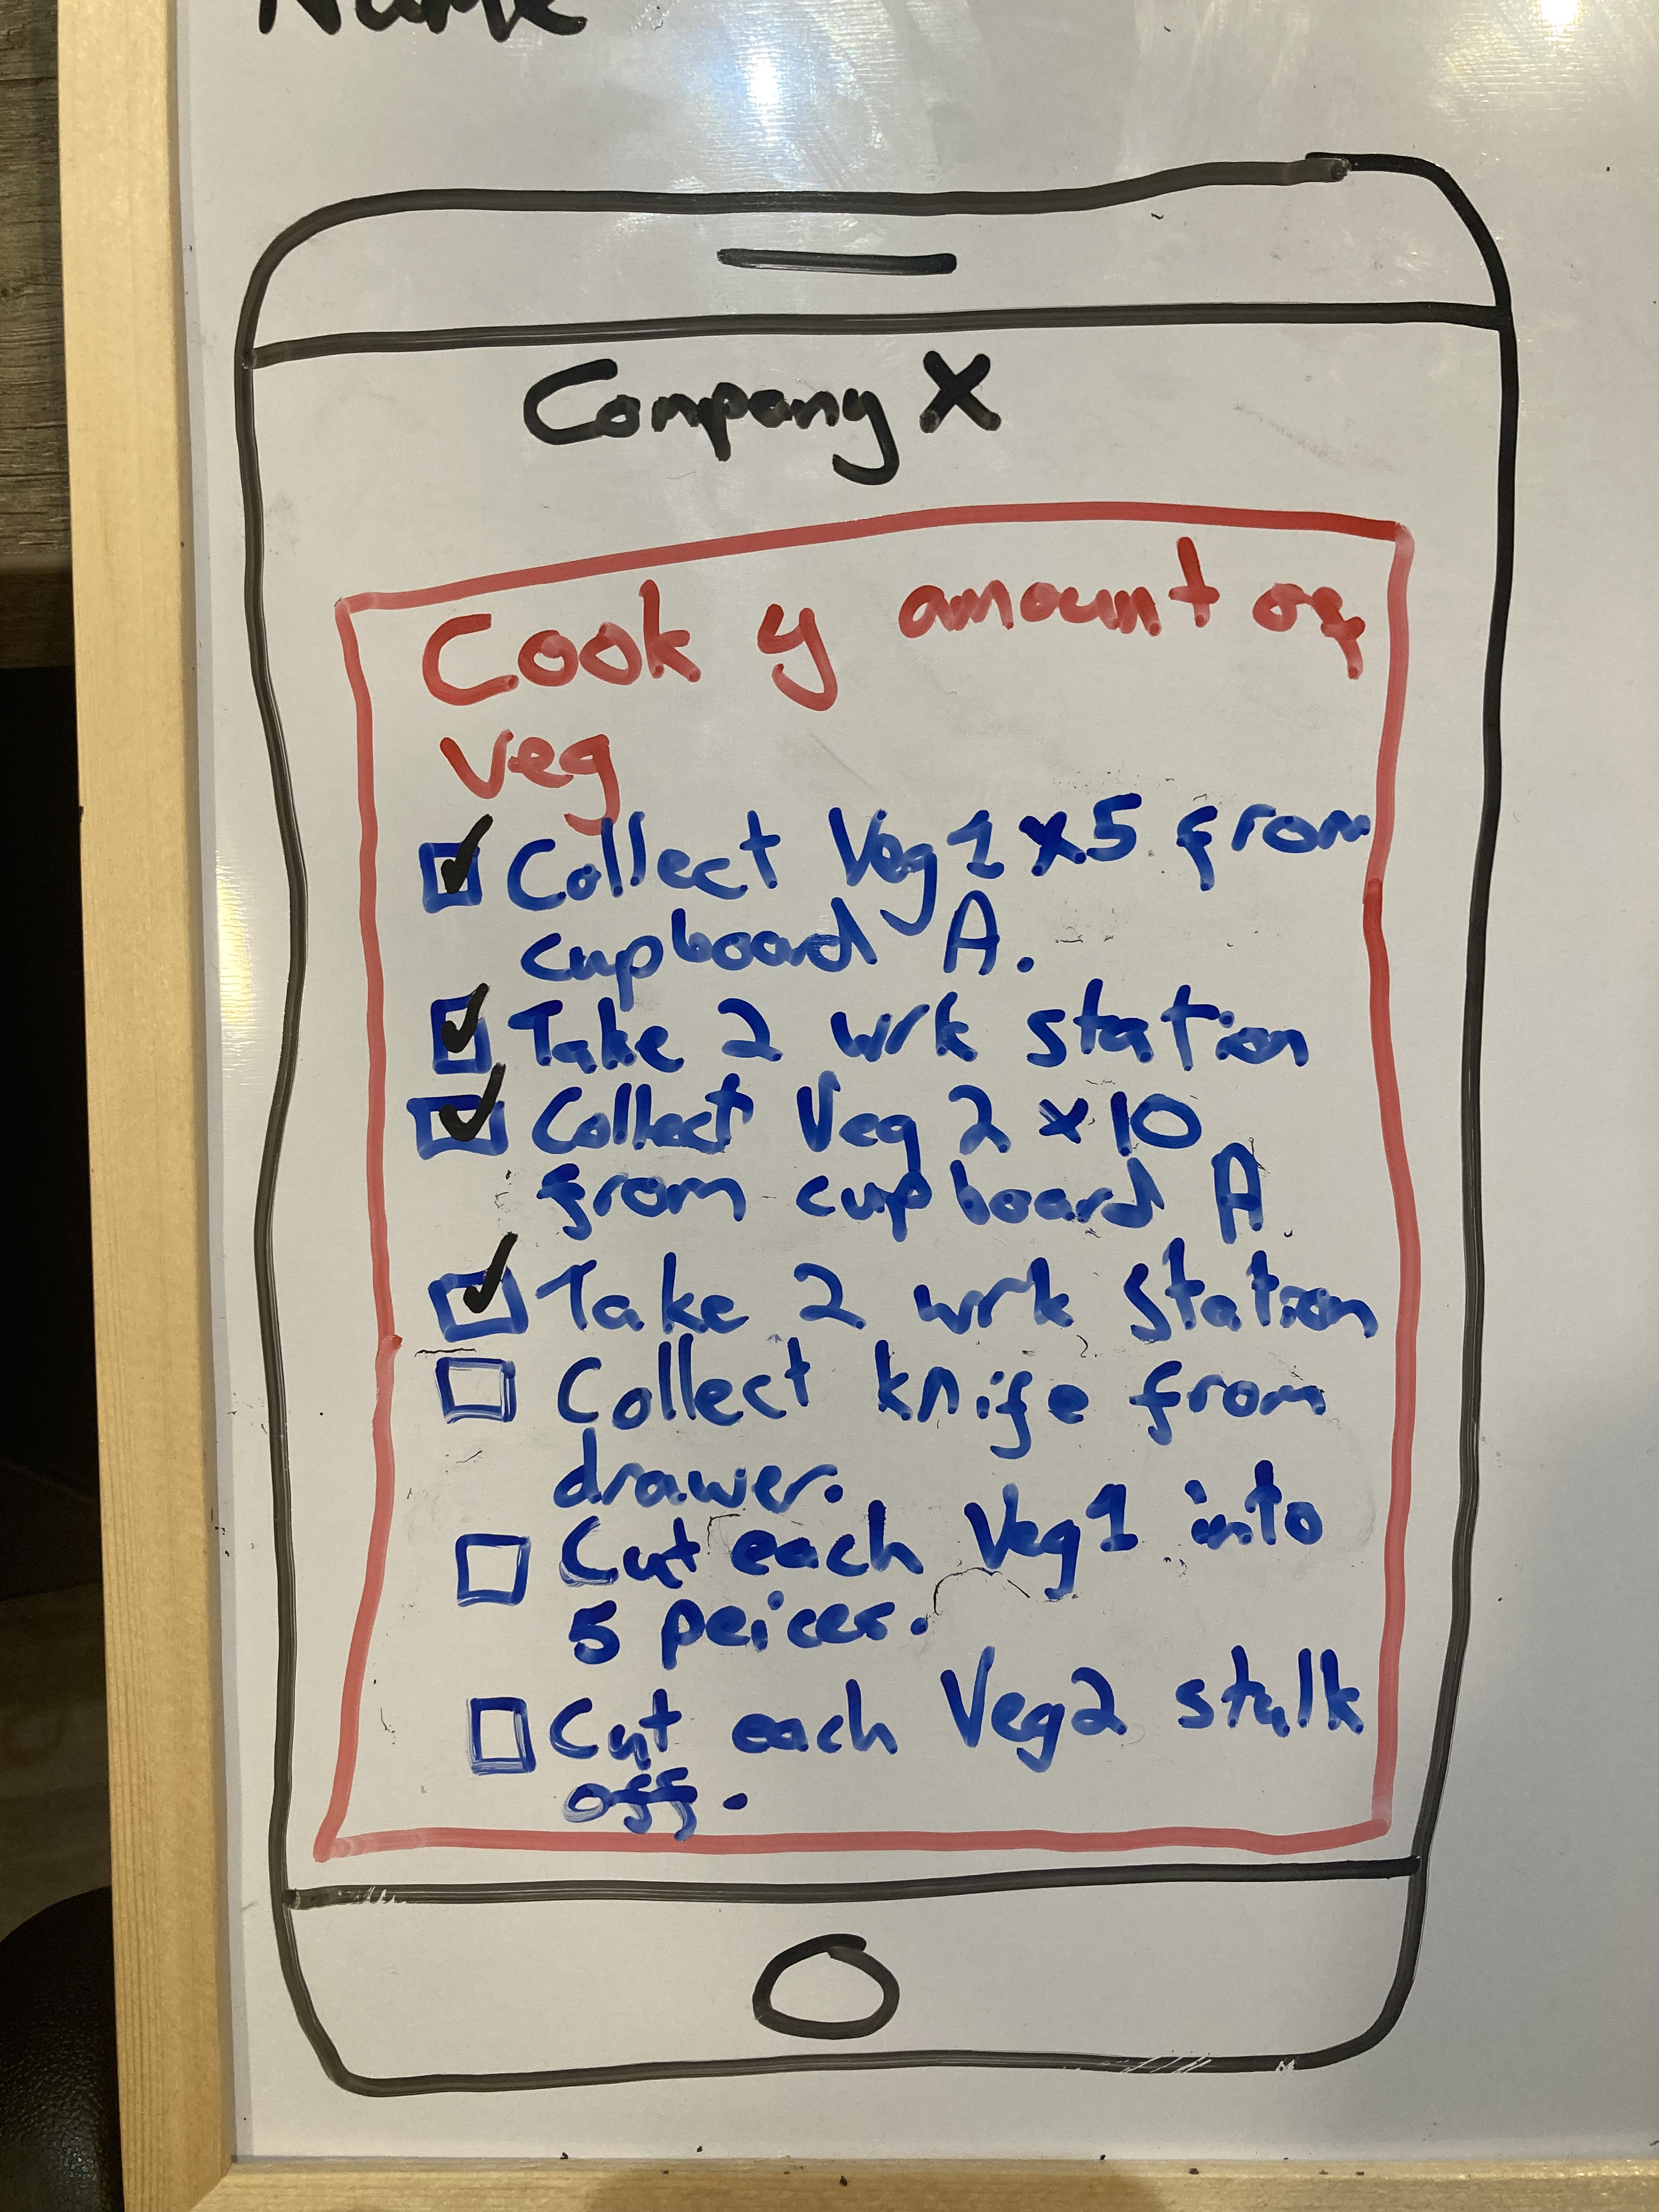 Name
Company X
Cook y amount of
veg
Collect Veg 1 x5 from
cupboard A.
Take 2 wrk station
Collect Veg 2 x10
from cupboard A
Take 2 wrk station
Collect knife from
drawer.
Cut each Veg 1 into
5 peices.
Cut each Veg2 stalk
off.